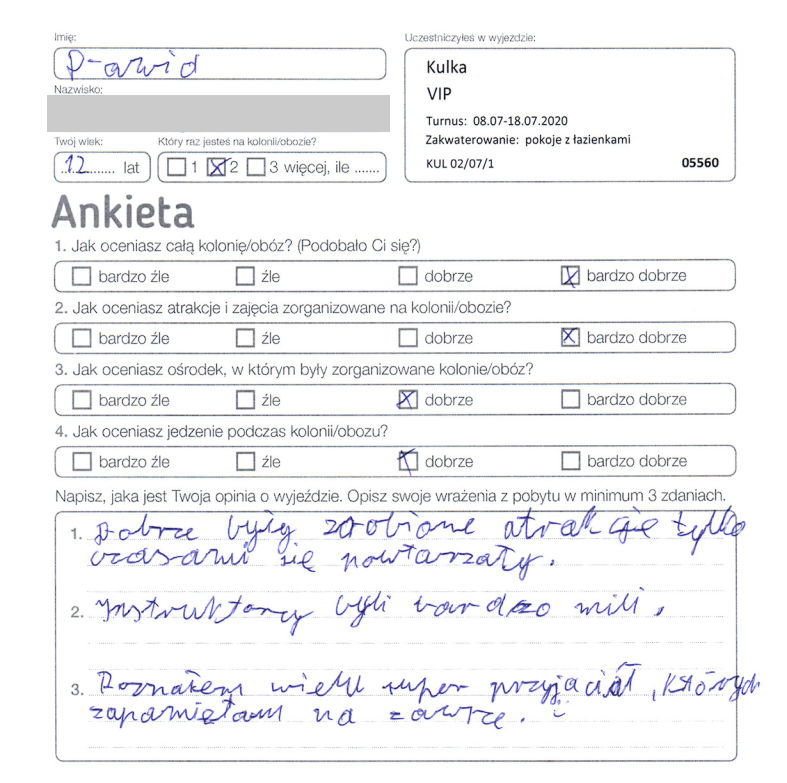 Imię:
Dawid
Uczestniczyłeś w wyjeździe:
Kulka
VIP
Turnus: 08.07-18.07.2020
Zakwaterowanie: pokoje z łazienkami
KUL 02/07/1 05560
Nazwisko:
Twój wiek:
12 lat
Który raz jesteś na kolonii/obozie?
1 2 3 więcej, ile .......
Ankieta
1. Jak oceniasz całą kolonię/obóz? (Podobało Ci się?)
bardzo źle źle dobrze bardzo dobrze
2. Jak oceniasz atrakcje i zajęcia zorganizowane na kolonii/obozie?
bardzo źle źle dobrze bardzo dobrze
3. Jak oceniasz ośrodek, w którym były zorganizowane kolonie/obóz?
bardzo źle źle dobrze bardzo dobrze
4. Jak oceniasz jedzenie podczas kolonii/obozu?
bardzo źle źle dobrze bardzo dobrze
Napisz, jaka jest Twoja opinia o wyjeździe. Opisz swoje wrażenia z pobytu w minimum 3 zdaniach.
1. Dobrze były zrobione atrakcje tylko
czasami się powtarzały.
2. Instruktorzy byli bardzo mili.
3. Poznałem wielu super przyjaciół, których
zapamiętam na zawsze.